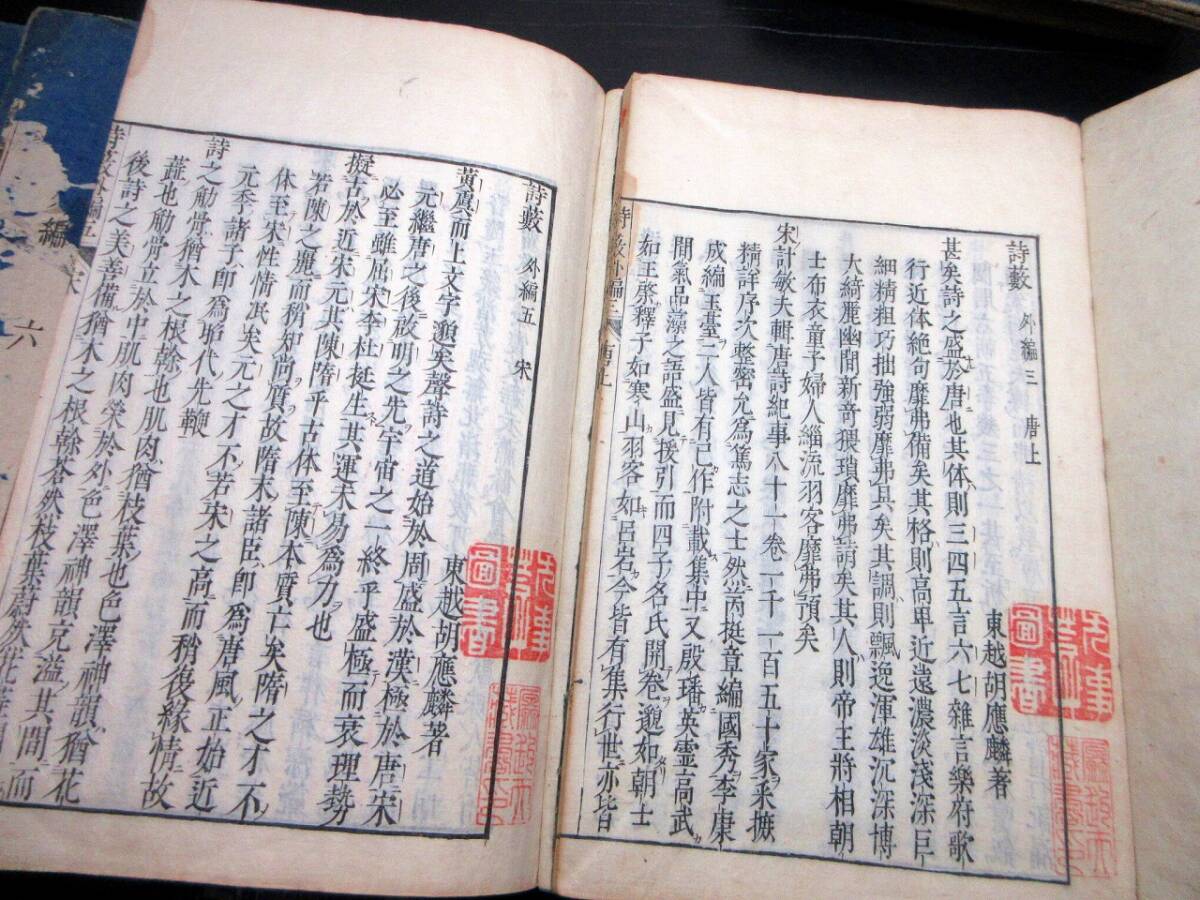 詩藪 外編三 唐上
東越胡應麟著
甚矣詩之盛於唐也其体則三四五言六七雜言樂府歌
行近体絕句靡弗備矣其格則高卑近遠濃淡淺深巨
細精粗巧拙強弱靡弗具矣其調則飄逸渾雄沉深博
大綺麗幽閒新奇猥瑣靡弗詣矣其人則帝王將相朝
士布衣童子婦人緇流羽客靡弗預矣
宋計敏夫輯唐詩紀事八十一卷一千一百五十家采摭
精詳序次整密允為篤志之士然芮挺章編國秀李康
成編玉臺二人皆有己作附載集中又殷璠英靈高武
間氣品藻之語盛見援引而四子名氏開卷邈如朝士
如王棨釋子如寒山羽客如呂岩今皆有集行世亦皆
詩藪外編三 唐上
詩藪 外編五 宋
東越胡應麟著
黃虞而上文字邈矣聲詩之道始於周盛於漢極於唐宋
元繼唐之後啟明之先宇宙之一終乎盛極而衰理勢
必至雖屈宋李杜挺生其運未易為力也
擬古於近宋元其陳隋乎古体至陳本質亡矣隋之才不
若陳之麗而稍知尚質故隋末諸臣即為唐風正始近
体至宋性情泯矣元之才不若宋之高而稍復緣情故
元季諸子即為昭代先鞭
詩之觔骨猶木之根幹也肌肉猶枝葉也色澤神韻猶花
蕋也觔骨立於中肌肉榮於外色澤神韻充溢其間而
後詩之美善備猶木之根幹蒼然枝葉蔚然花蕋
詩藪外編五
編
宋
六
圖書
圖書